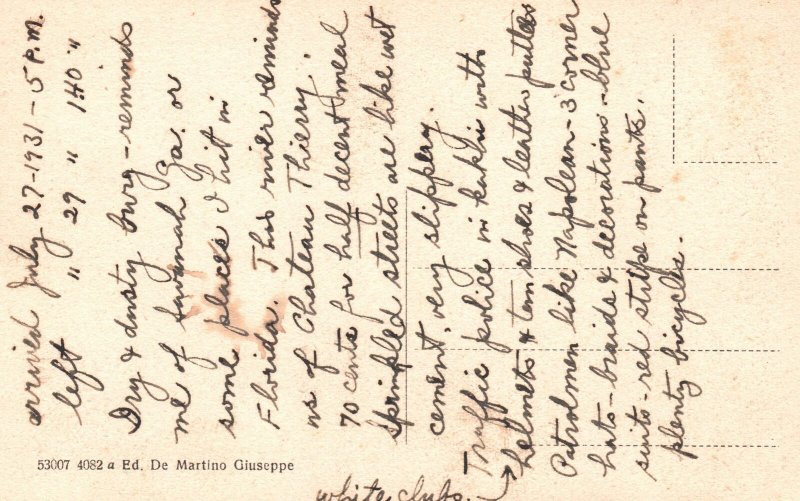 arrived July 27-1931-5 P.M.
left " 29 " 1:40 "
Dry & dusty burg-reminds
me of Savannah Ga. or
some places I hit in
Florida. This river reminds
us of Chateau Thierry.
70 cents for half decent meal
Sprinkled streets are like wet
cement, very slippery.
Traffic police in kakhi with
helmets & tan shoes & leather puttees
Patrolmen like Napolean-3 corner
hats-braids & decorations-blue
suits-red stripe on pants.
plenty bicycles.
white clubs.
53007 4082 a Ed. De Martino Giuseppe